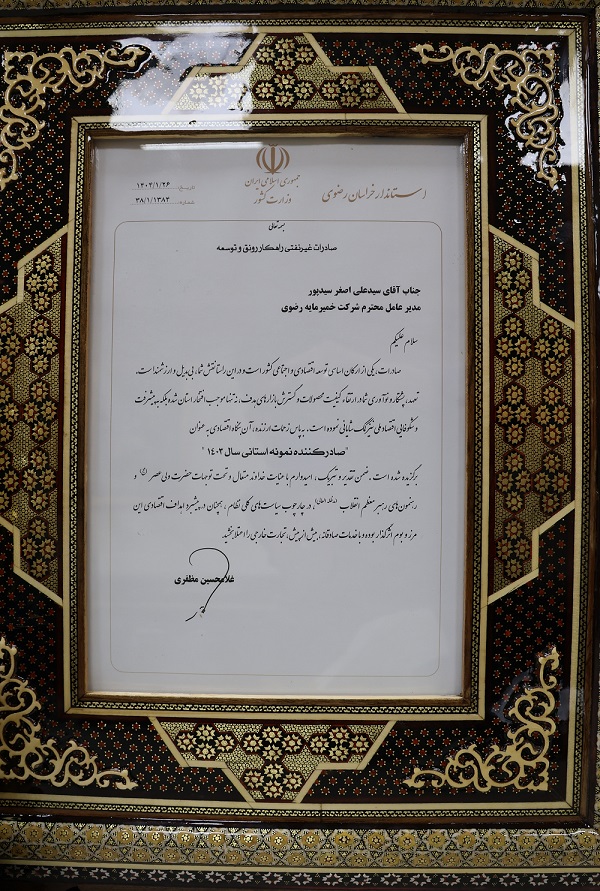 جمهوری اسلامی ایران
وزارت کشور
استاندار خراسان رضوی
تاریخ:
شماره: ۳۸/۱/۱۳۸۲
بسمه تعالی
صادرات غیرنفتی راهکار رونق و توسعه
جناب آقای سیدعلی اصغر سیدپور
مدیر عامل محترم شرکت خمیرمایه رضوی
سلام علیکم
صادرات، یکی از ارکان اساسی توسعه اقتصادی و اجتماعی کشور است و در این راستا نقش شما، بی‌بدیل و ارزشمند است.
تعهد، پشتکار و نوآوری شما در ارتقاء کیفیت محصولات و گسترش بازارهای هدف، نه تنها موجب افتخار استان شده بلکه به پیشرفت
و شکوفایی اقتصاد ملی نیز کمک شایانی نموده است. به پاس زحمات ارزنده، آن بنگاه اقتصادی به عنوان
"صادرکننده نمونه استانی سال ۱۴۰۳"
برگزیده شده است. ضمن تقدیر و تبریک، امیدوارم با عنایات خداوند متعال و تحت توجهات حضرت ولی عصر (عج) و
رهنمون‌های رهبر معظم انقلاب (مدظله العالی)، در چارچوب سیاست‌های کلی نظام، همچنان در پیشبرد اهداف اقتصادی این
مرز و بوم اثرگذار بوده و با خدمات صادقانه، بیش از پیش، تجارت خارجی را اعتلا بخشید.
غلامحسین مظفری